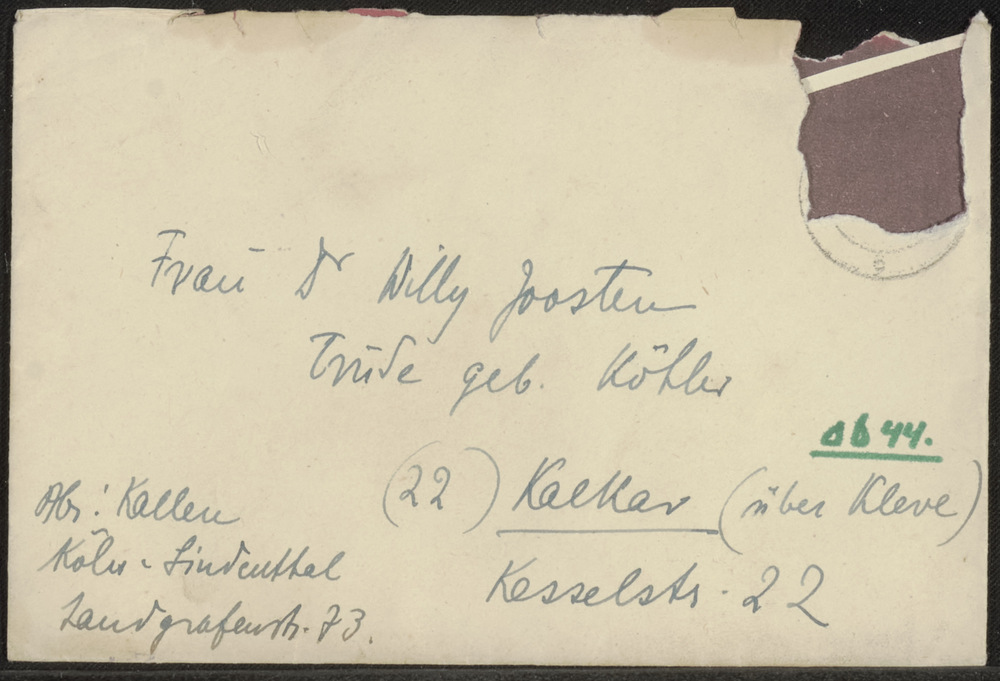 Frau Dr Willy Joosten
Trude geb. Köhler
ab 44.
(22) Kalkar (über Kleve)
Kesselstr. 22
Abs: Kallen
Köln-Lindenthal
Landgrafenstr. 73.